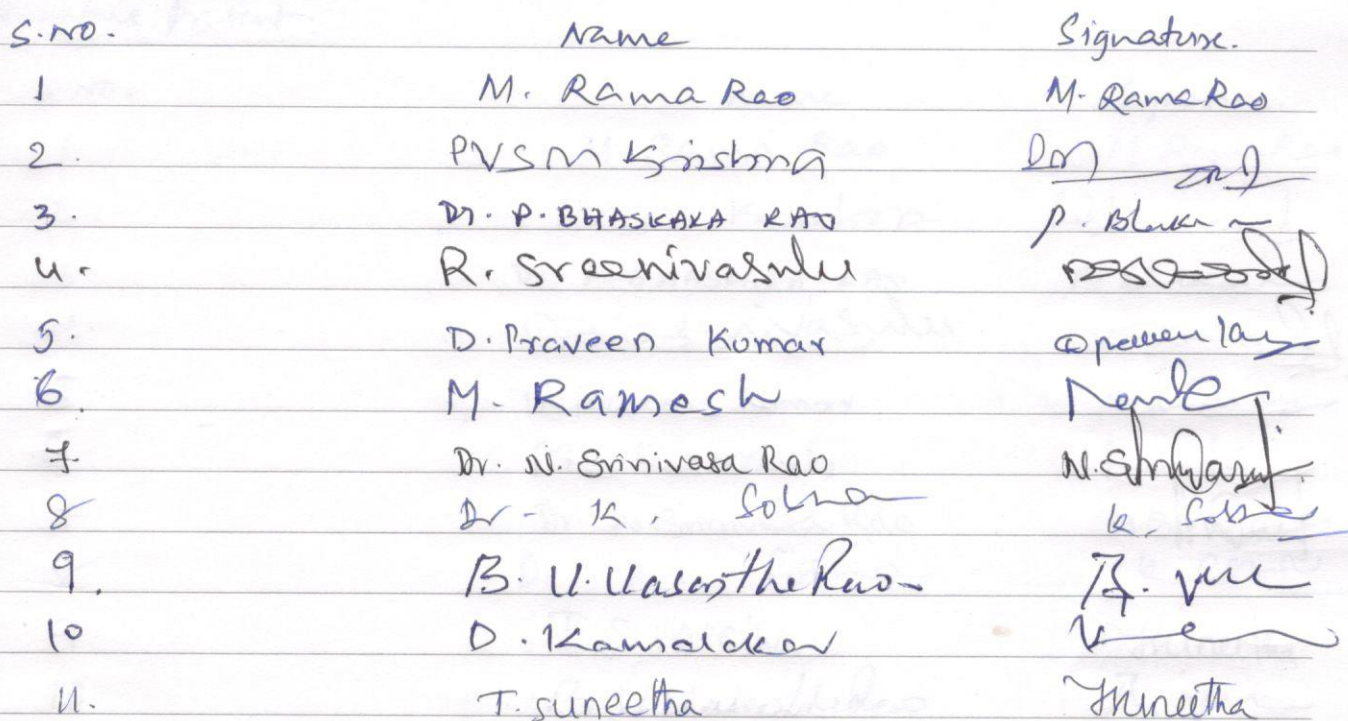 S.NO. Name Signature.
1 M. Rama Rao M. Rama Rao
2. PVSM Krishna
3. Dr. P. BHASKARA RAO P.
4. R. Sreenivasulu
5. D. Praveen Kumar
6. M. Ramesh
7. Dr. N. Srinivasa Rao N.
8 Dr - K. Sobha K. Sobha
9. B. V. Vasantha Rao
10 D. Kamalakar
11. T. Suneetha TSuneetha